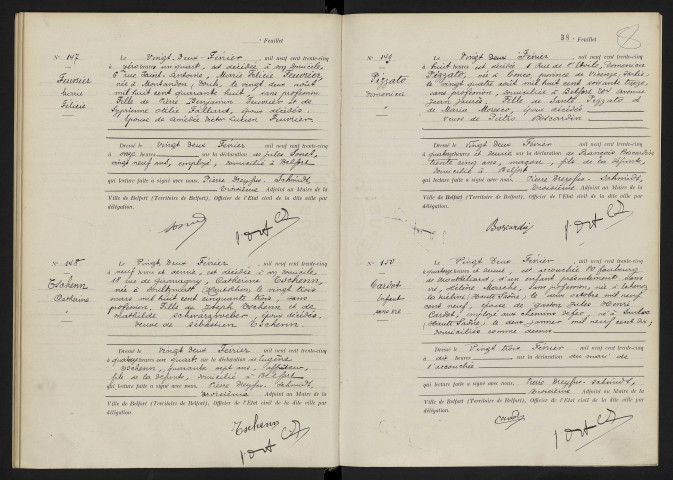 Feuillet
N° 147
Feuvrier
Marie
Félicie
Le Vingt Deux Février, mil neuf cent trente-cinq
à zéro heure un quart, est décédée à son domicile
6 rue Saint-Antoine, Marie Félicie Feuvrier,
née à Montandon, Doubs, le vingt deux août
mil huit cent quarante huit, sans profession
Fille de Pierre Benjamin Feuvrier et de
époux décédés.
Epouse de Feuvrier
Dressé le Vingt Deux Février, mil neuf cent trente-cinq
à onze heures sur la déclaration de Jules
vingt neuf ans, employé, domicilié à Belfort
qui lecture faite a signé avec nous, Pierre Dreyfus-Schmidt,
troisième Adjoint au Maire de la
Ville de Belfort (Territoire de Belfort), Officier de l'Etat civil de la dite ville par
délégation.
N° 148
Tschenn
Catherine
Le Vingt Deux Février, mil neuf cent trente-cinq
à neuf heures et demie, est décédée à son domicile
18 rue de Giromagny, Catherine Tschenn,
née à le vingt trois
mars mil huit cent cinquante trois, sans
profession, Fille de Joseph Tschenn et de
Mathilde époux décédés
Veuve de Sébastien Tschenn.
Dressé le Vingt Deux Février, mil neuf cent trente-cinq
à quatorze heures un quart sur la déclaration de Eugène
Tschenn, quarante sept ans,
fils de la défunte, domicilié à Belfort
qui lecture faite a signé avec nous, Pierre Dreyfus-Schmidt,
troisième Adjoint au Maire de la
Ville de Belfort (Territoire de Belfort), Officier de l'Etat civil de la dite ville par
délégation.
Tschenn
38 Feuillet
8
N° 149
Pizzato
Domenica
Le Vingt Deux Février, mil neuf cent trente-cinq
à huit heures est décédée Domenica
Pizzato, née à Conco, province de Vicenza, Italie,
le vingt quatre août mil huit cent soixante treize
sans profession, domiciliée à Belfort 204 avenue
Jean Jaurès. Fille de Santé Pizzato et
de Maria époux décédés
Veuve de Piétro Boscardin
Dressé le Vingt Deux Février, mil neuf cent trente-cinq
à quatorze heures et demie sur la déclaration de François Boscardin
trente cinq ans, maçon, fils de la défunte,
domicilié à Belfort
qui lecture faite a signé avec nous, Pierre Dreyfus-Schmidt,
troisième Adjoint au Maire de la
Ville de Belfort (Territoire de Belfort), Officier de l'Etat civil de la dite ville par
délégation.
Boscardin
N° 150
Cardot
Enfant
sans vie
Le Vingt Deux Février, mil neuf cent trente-cinq
à quatorze heures et demie, est accouchée 14 faubourg
de Montbéliard, d'un enfant présentement sans
vie, Hélène sans profession, née à
(Haute Saône), le six octobre mil neuf
cent neuf, épouse de Gaston Jules Henri
Cardot, employé aux chemins de fer, né à
(Haute Saône), le deux janvier mil neuf cent dix,
domiciliés comme dessus
Dressé le Vingt trois Février, mil neuf cent trente-cinq
à dix heures sur la déclaration du mari de
l'accouchée
qui, lecture faite a signé avec nous, Pierre Dreyfus-Schmidt,
troisième Adjoint au Maire de la
Ville de Belfort (Territoire de Belfort), Officier de l'Etat civil de la dite ville par
délégation.
Cardot